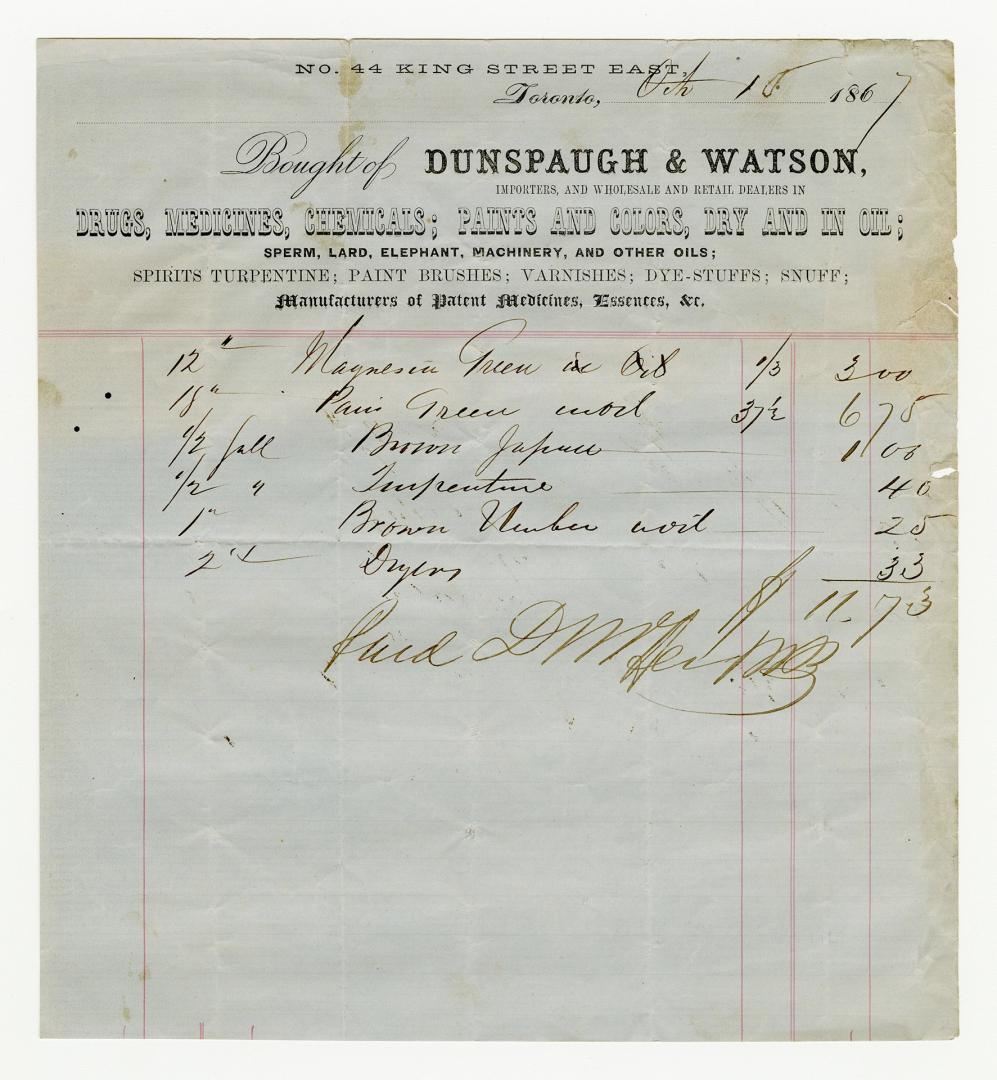 NO. 44 KING STREET EAST,
Toronto, Octr 15 1867
Bought of DUNSPAUGH & WATSON,
IMPORTERS, AND WHOLESALE AND RETAIL DEALERS IN
DRUGS, MEDICINES, CHEMICALS; PAINTS AND COLORS, DRY AND IN OIL;
SPERM, LARD, ELEPHANT, MACHINERY, AND OTHER OILS;
SPIRITS TURPENTINE; PAINT BRUSHES; VARNISHES; DYE-STUFFS; SNUFF;
Manufacturers of Patent Medicines, Essences, &c.
12 " Magnesia Green in Oil 1/3 3 00
18 " Paris Green in oil 37½ 6 75
1/2 Gall Brown Japan 1 00
1/2 " Turpentine 40
1 " Brown Umber in oil 25
2 " Dryers 33
$ 11. 73
Paid